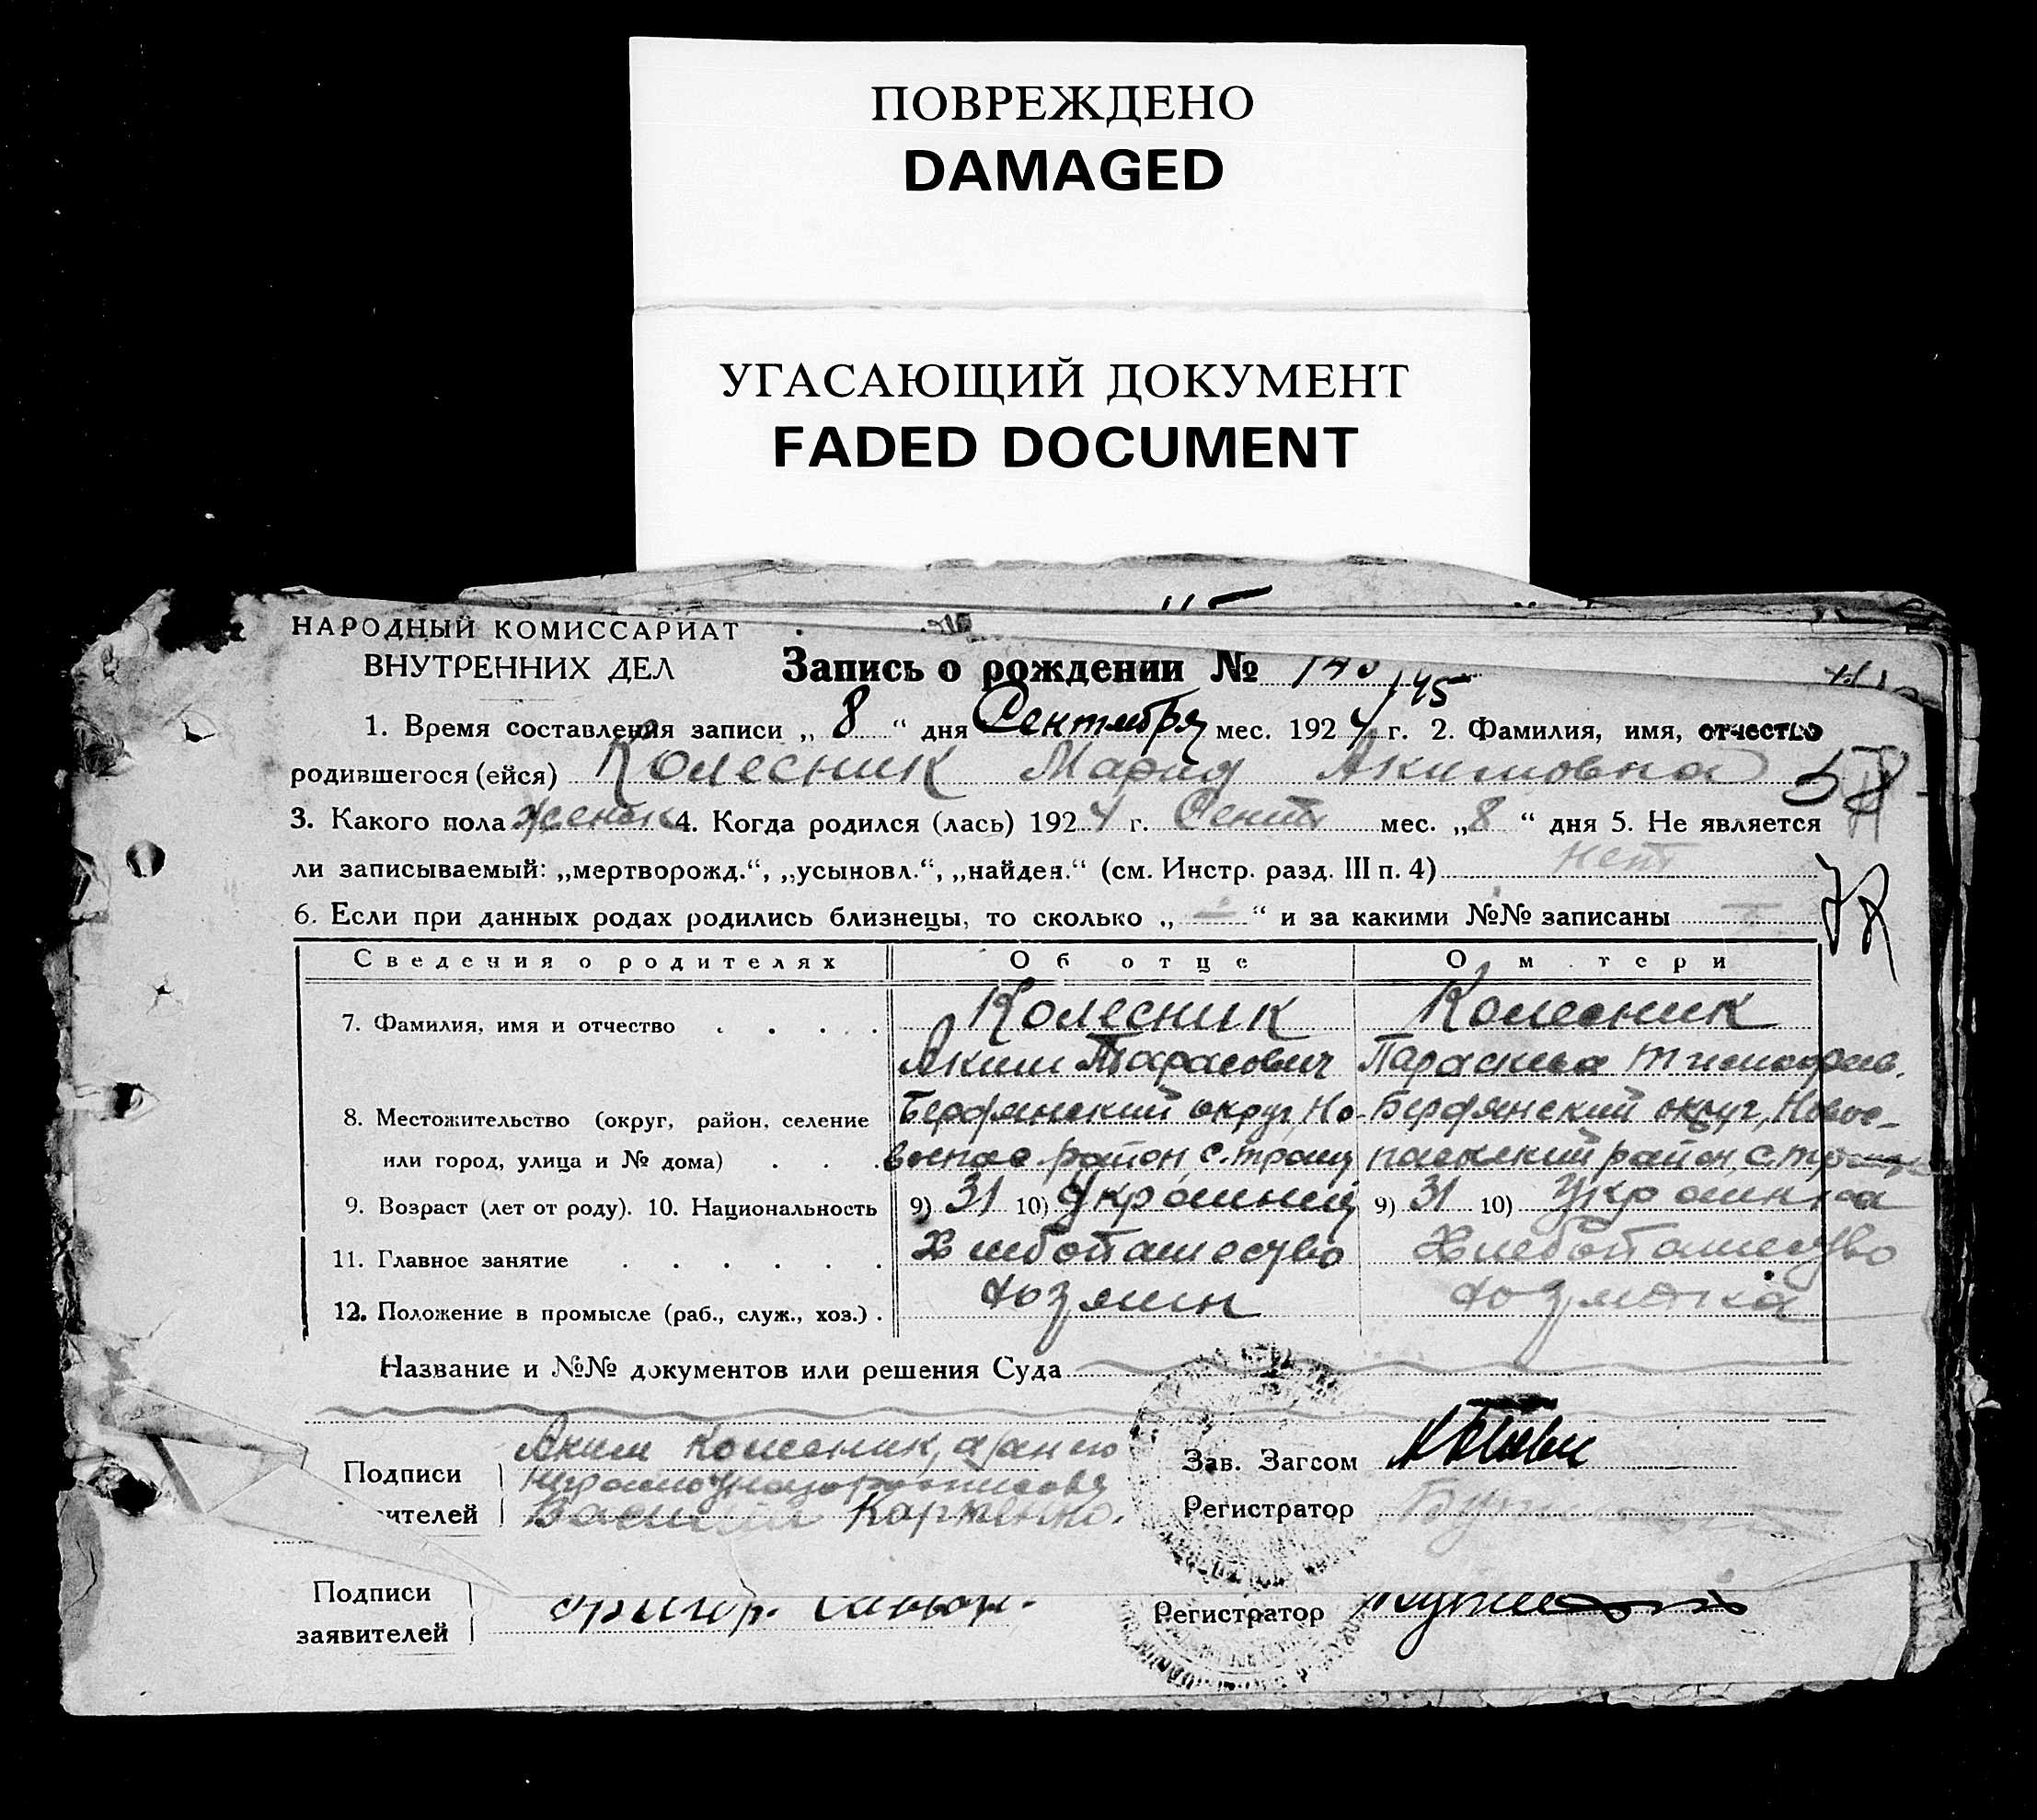 ПОВРЕЖДЕНО
DAMAGED
УГАСАЮЩИЙ ДОКУМЕНТ
FADED DOCUMENT
НАРОДНЫЙ КОМИССАРИАТ
ВНУТРЕННИХ ДЕЛ
Запись о рождении №
145
1. Время составления записи „ 8 “ дня Сентября мес. 1924 г. 2. Фамилия, имя, отчество
родившегося (ейся) Колесник Мария Акимовна 58
3. Какого пола женск 4. Когда родился (лась) 1924 г. Сент мес. „8 “ дня 5. Не является
ли записываемый: „мертворожд.“, „усыновл.“, „найден.“ (см. Инстр. разд. III п. 4) нет
6. Если при данных родах родились близнецы, то сколько „ - “ и за какими №№ записаны -
Сведения о родителях Об отце О м тери
7. Фамилия, имя и отчество . . . . Колесник Колесник
Аким Тарасович Параскева Тимофеев.
8. Местожительство (округ, район, селение Бердянский округ, Но- Бердянский округ, Новос-
или город, улица и № дома) . . . воспас район, с. Троиц пасский район, с.
9. Возраст (лет от роду). 10. Национальность 9) 31 10) Украинец 9) 31 10) Украинка
11. Главное занятие . . . . . . Хлебопашество Хлебопашество
12. Положение в промысле (раб., служ., хоз.) . хозяин хозяйка
Название и №№ документов или решения Суда
Подписи Аким Колесник, а за него
неграмотного росписался
ителей Василий Карпенко.
Зав. Загсом
Регистратор
Подписи
заявителей
Регистратор